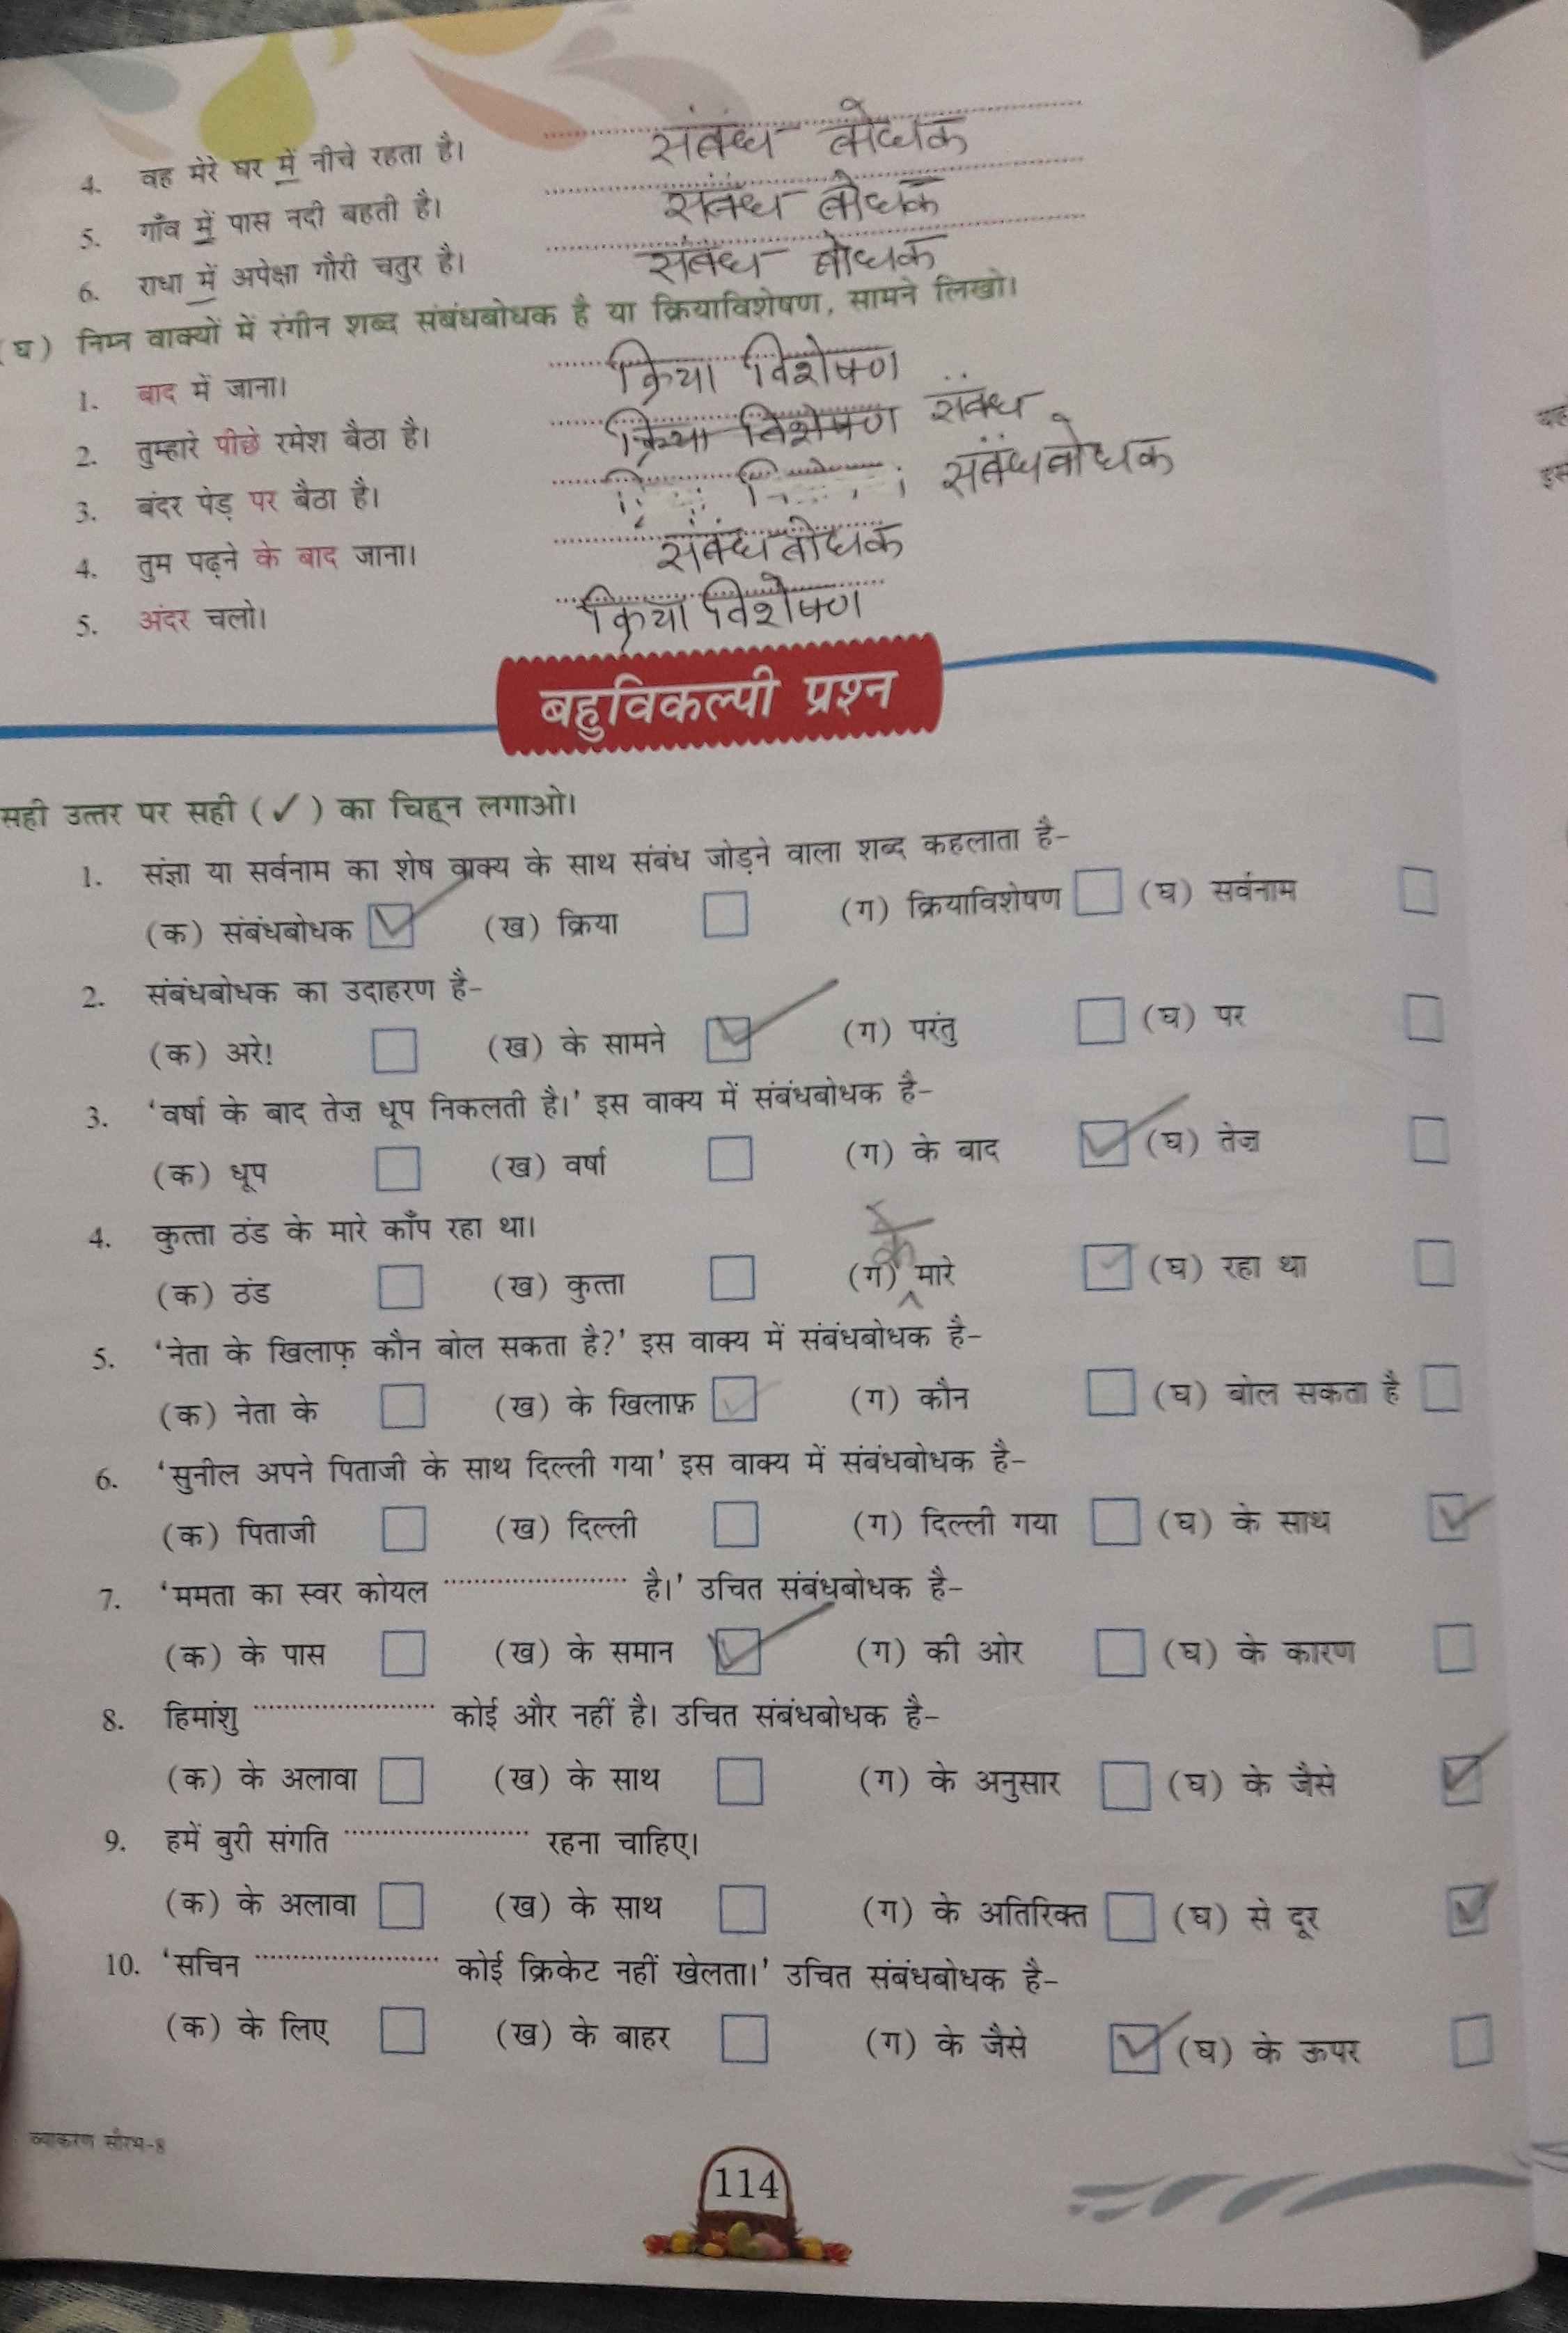 4. वह मेरे घर में नीचे रहता है। संबंध बोधक
5. गाँव में पास नदी बहती है। संबंध बोधक
6. राधा में अपेक्षा गौरी चतुर है। संबंध बोधक
(घ) निम्न वाक्यों में रंगीन शब्द संबंधबोधक है या क्रियाविशेषण, सामने लिखो।
1. बाद में जाना। क्रिया विशेषण
2. तुम्हारे पीछे रमेश बैठा है। क्रिया विशेषण संबंध
3. बंदर पेड़ पर बैठा है। संबंधबोधक
4. तुम पढ़ने के बाद जाना। संबंधबोधक
5. अंदर चलो। क्रिया विशेषण
बहुविकल्पी प्रश्न
सही उत्तर पर सही (✓) का चिह्न लगाओ।
1. संज्ञा या सर्वनाम का शेष वाक्य के साथ संबंध जोड़ने वाला शब्द कहलाता है-
(क) संबंधबोधक ✓ (ख) क्रिया (ग) क्रियाविशेषण (घ) सर्वनाम
2. संबंधबोधक का उदाहरण है-
(क) अरे! (ख) के सामने ✓ (ग) परंतु (घ) पर
3. 'वर्षा के बाद तेज़ धूप निकलती है।' इस वाक्य में संबंधबोधक है-
(क) धूप (ख) वर्षा (ग) के बाद ✓ (घ) तेज़
4. कुत्ता ठंड के मारे काँप रहा था।
(क) ठंड (ख) कुत्ता (ग) के मारे ✓ (घ) रहा था
5. 'नेता के खिलाफ़ कौन बोल सकता है?' इस वाक्य में संबंधबोधक है-
(क) नेता के (ख) के खिलाफ़ ✓ (ग) कौन (घ) बोल सकता है
6. 'सुनील अपने पिताजी के साथ दिल्ली गया' इस वाक्य में संबंधबोधक है-
(क) पिताजी (ख) दिल्ली (ग) दिल्ली गया (घ) के साथ ✓
7. 'ममता का स्वर कोयल .................... है।' उचित संबंधबोधक है-
(क) के पास (ख) के समान ✓ (ग) की ओर (घ) के कारण
8. हिमांशु .................... कोई और नहीं है। उचित संबंधबोधक है-
(क) के अलावा (ख) के साथ (ग) के अनुसार (घ) के जैसे ✓
9. हमें बुरी संगति .................... रहना चाहिए।
(क) के अलावा (ख) के साथ (ग) के अतिरिक्त (घ) से दूर ✓
10. 'सचिन .................... कोई क्रिकेट नहीं खेलता।' उचित संबंधबोधक है-
(क) के लिए (ख) के बाहर (ग) के जैसे ✓ (घ) के ऊपर
व्याकरण सौरभ-8
114